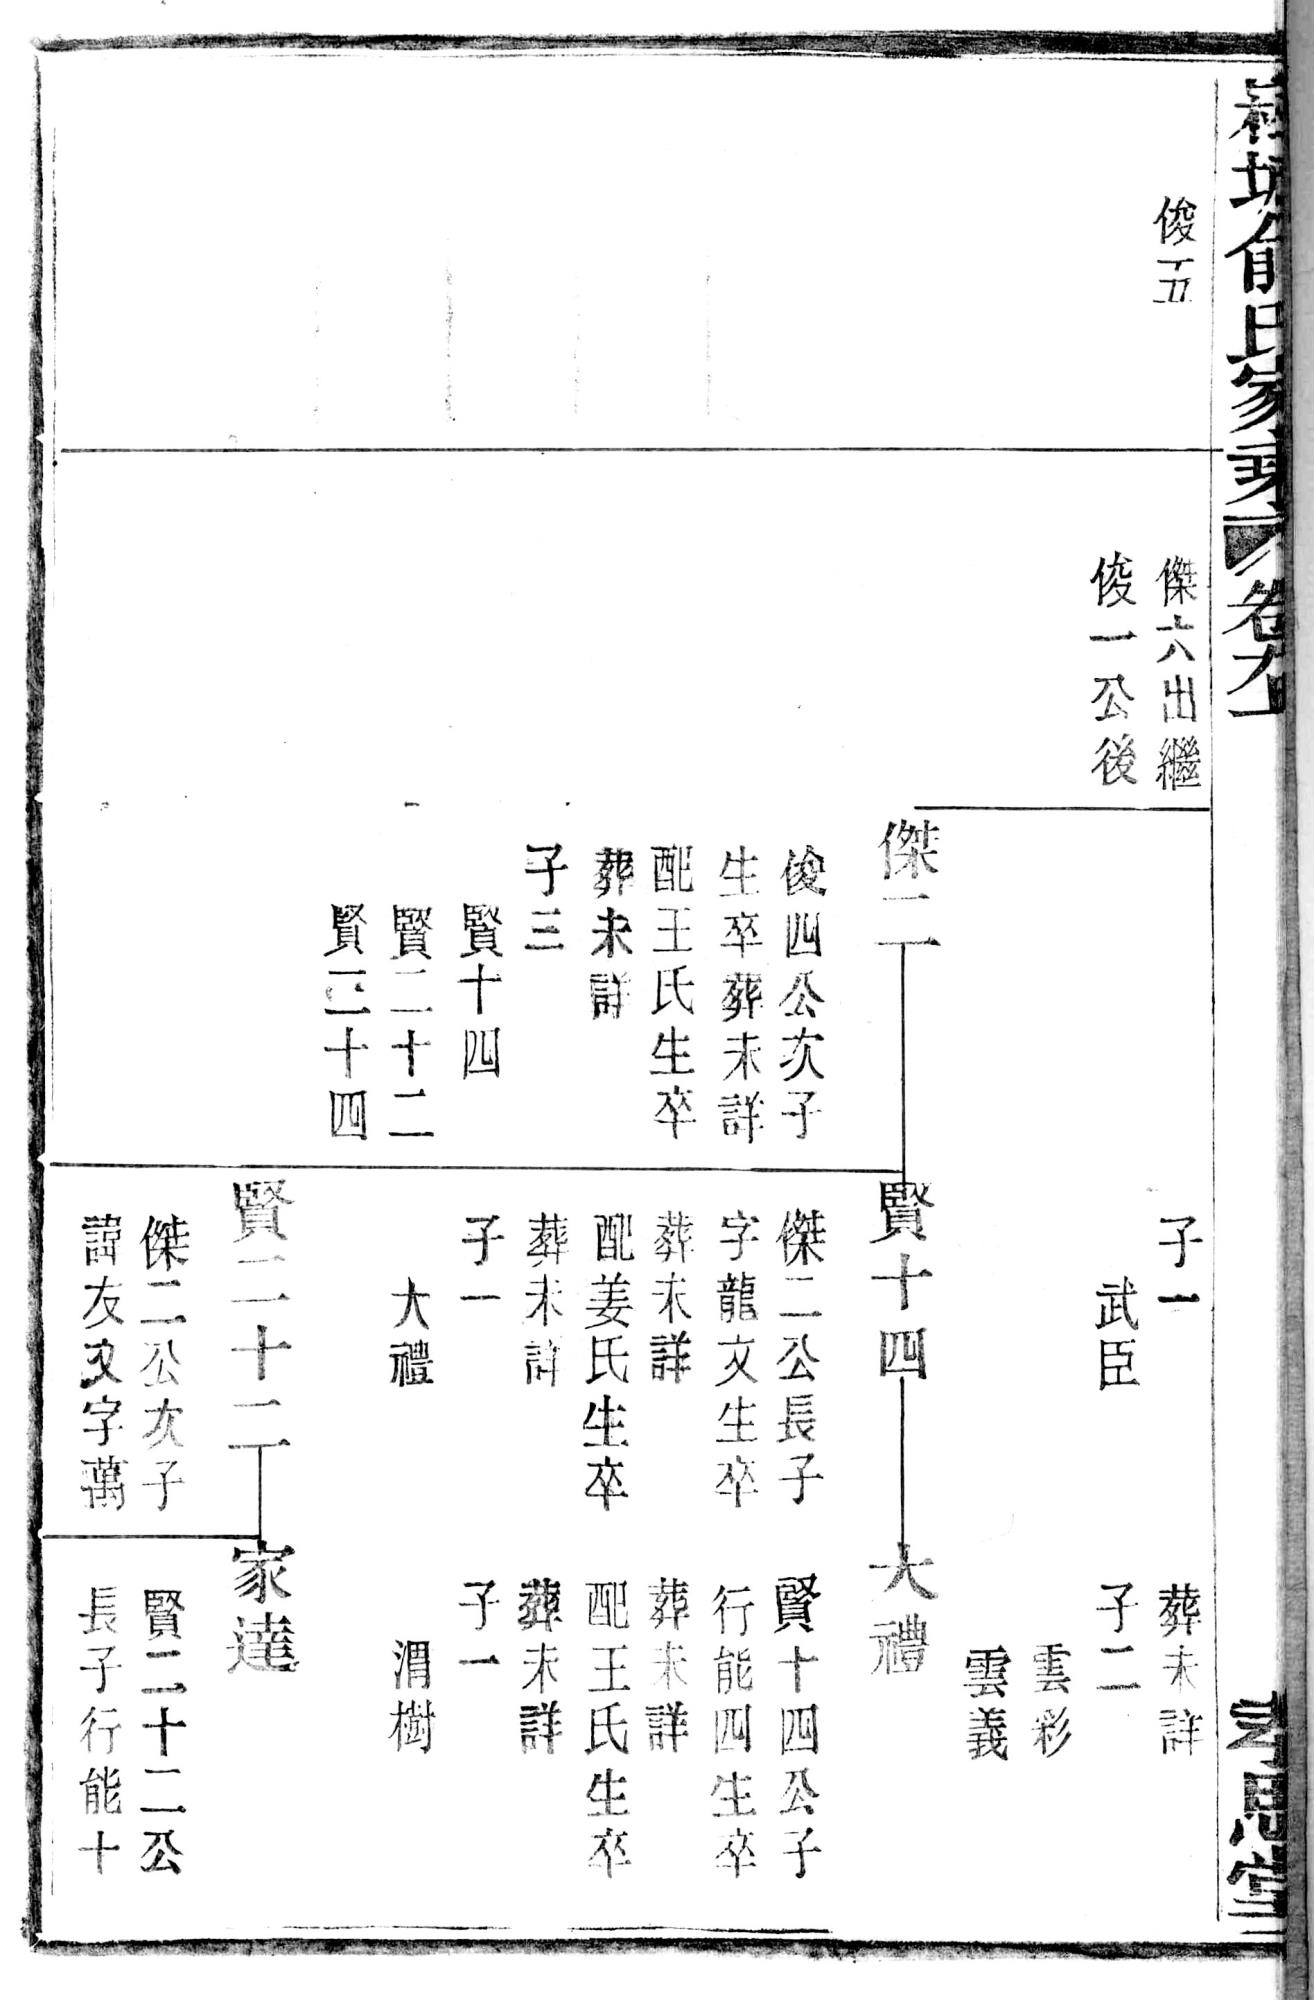 俞氏家乘
卷
孝思堂
俊五
傑六出繼
俊一公後
傑二
俊四公次子
生卒葬未詳
配王氏生卒
葬未詳
子三
賢十四
賢二十二
賢三十四
子一
武臣
賢十四
傑二公長子
字龍文生卒
葬未詳
配姜氏生卒
葬未詳
子一
大禮
賢二十二
傑二公次子
諱友文字萬
葬未詳
子二
雲彩
雲義
大禮
賢十四公子
行能四生卒
葬未詳
配王氏生卒
葬未詳
子一
渭樹
家達
賢二十二公
長子行能十